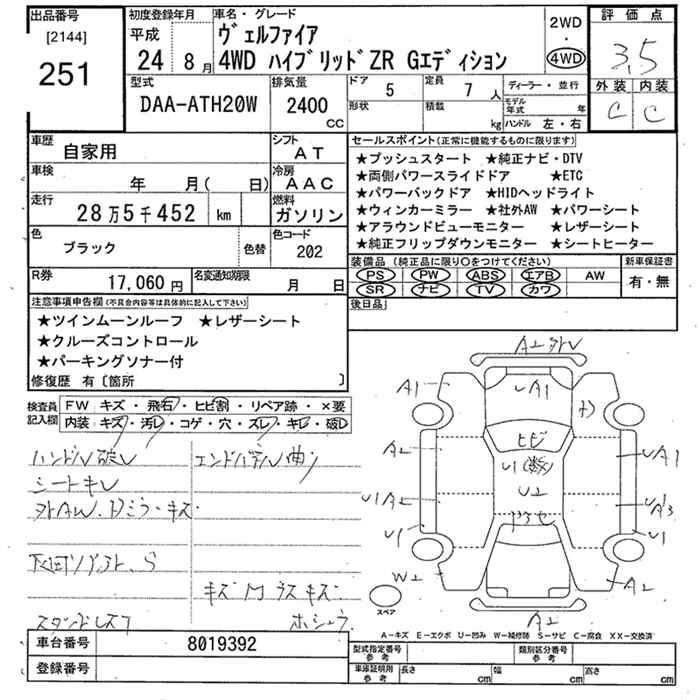 出品番号
[2144]
251
初度登録年月
平成
24 8月
車名・グレード
ヴェルファイア
4WD ハイブリッドZR Gエディション
2WD
・
4WD
評価点
3.5
外装 内装
C C
型式
DAA-ATH20W
排気量
2400
CC
ドア
5
定員
7 人
形状
積載
kg
ディーラー・並行
モデル年式 年
ハンドル 左・右
車歴
自家用
シフト
AT
車検
年 月( 日)
冷房
AAC
走行
28万5千452 km
燃料
ガソリン
色
ブラック
色替
色コード
202
R券
17,060円
名変通知期限
月 日
セールスポイント(正常に機能するものに限ります)
★プッシュスタート ★純正ナビ・DTV
★両側パワースライドドア ★ETC
★パワーバックドア ★HIDヘッドライト
★ウィンカーミラー ★社外AW ★パワーシート
★アラウンドビューモニター ★レザーシート
★純正フリップダウンモニター ★シートヒーター
装備品(純正品に限り○をつけてください)
新車保証書
PS PW ABS エアB AW
SR ナビ TV カワ
有・無
後日品
注意事項申告欄(不具合内容等は具体的に記入して下さい)
★ツインムーンルーフ ★レザーシート
★クルーズコントロール
★パーキングソナー付
修復歴 有〔箇所 〕
検査員記入欄
FW キズ・飛石・ヒビ割・リペア跡・×要
内装・キズ・汚レ・コゲ・穴・ズレ・キレ・破レ
ハンドル破レ エンドパネル曲り
シートキレ
外AW.ドミラーキズ
キズ M ラスキズ
A1
A1
A2
U1A2
U1
W2
UA1
ヒビ
U1(数)
U2
UA1
UA3
U1
A2
A2
スペア
A-キズ E-エクボ U-凹み W-補修跡 S-サビ C-腐食 XX-交換済
車台番号
8019392
登録番号
型式指定番号参考
類別区分番号参考
車庫証明用参考
長さ cm
幅 cm
高さ cm